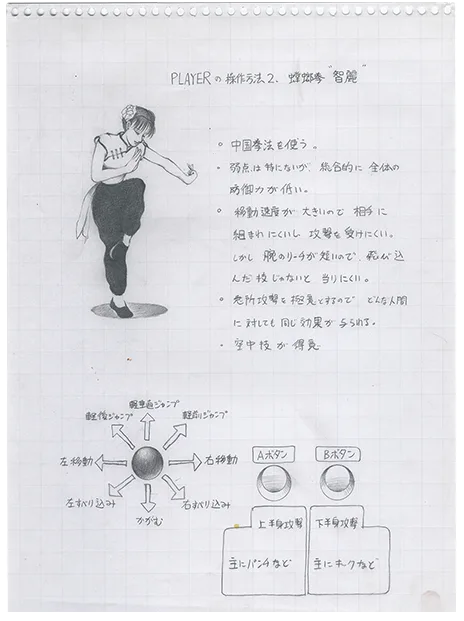 PLAYERの操作方法2. 螳螂拳"智麗"
• 中国拳法を使う。
• 弱点は特にないが 総合的に 全体の
防御力が低い。
• 移動速度が 大きいので 相手に
組まれにくいし 攻撃を受けにくい。
しかし 腕のリーチが短いので 飛び込
んだ技じゃないと 当りにくい。
• 急所攻撃を極意とするので どんな人間
に対しても同じ効果が与られる。
• 空中技が得意
軽垂直ジャンプ
軽後ジャンプ
軽前ジャンプ
左移動
右移動
左すべり込み
右すべり込み
かがむ
Aボタン
Bボタン
上半身攻撃
下半身攻撃
主にパンチなど
主にキックなど